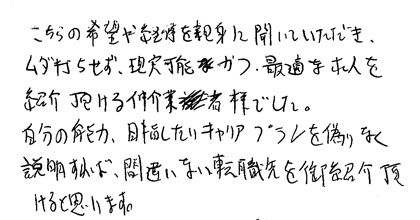 こちらの希望や経緯を親身に聞いていただき、
ムダ打ちせず、現実可能かつ、最適な求人を
紹介頂ける仲介業者様でした。
自分の能力、目指したいキャリアプランを偽りなく
説明すれば、間違いない転職先を御紹介頂
けると思います。